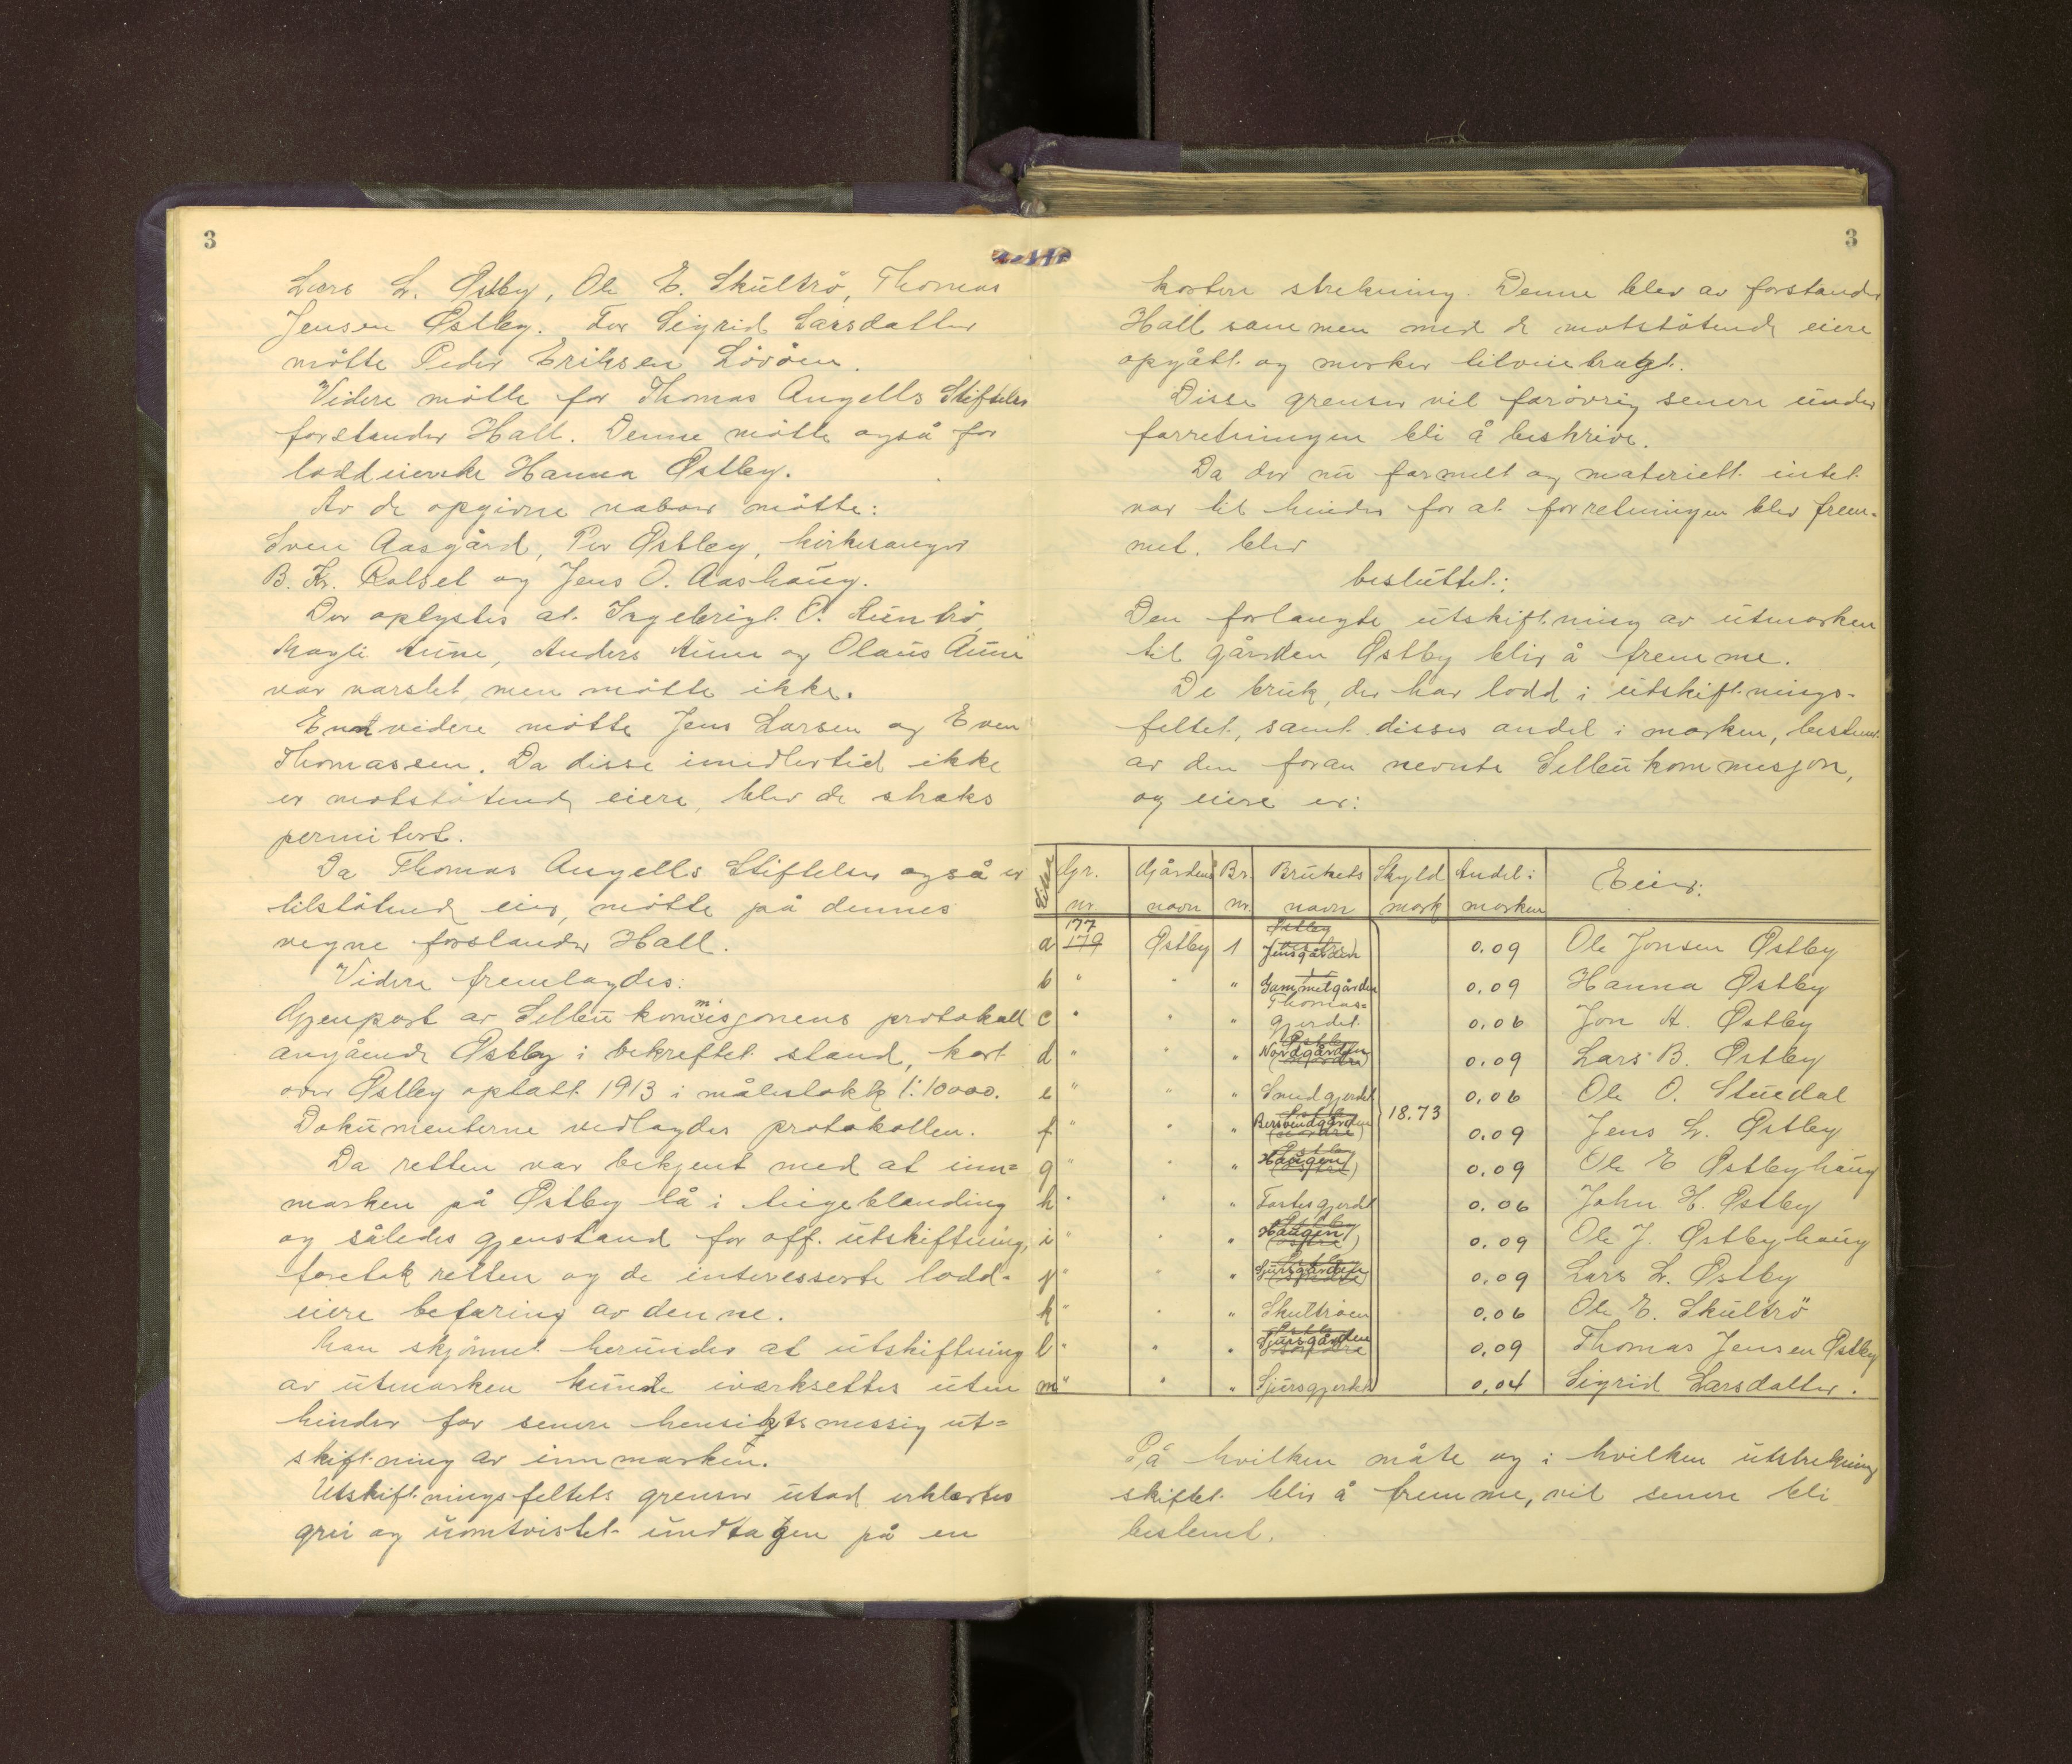 3
Lars L. Østby, Ole E. Skultrö, Thomas
Jensen Østby. For Sigrid Larsdatter
mötte Peder Eriksen Lövöen.
Videre mötte for Thomas Angells Stiftelser
forstander Hall. Denne mötte også for
loddeierske Hanna Østby.
Av de opgivne naboer mötte:
Sven Aasgård, Per Østby, kirkesanger
B. Kr. Rolset og Jens O. Aashaug.
Der oplystes at Ingebrigt O. Auntrö
Magli Aune, Anders Aune og Olaus Aune
var varslet, men mötte ikke.
Endvidere mötte Jens Larsen og Even
Thomassen. Da disse imidlertid ikke
er motstötende eiere, blev de straks
permitert.
Da Thomas Angells Stiftelser også er
tilstötende eier, mötte på dennes
vegne forstander Hall.
Videre fremlagdes:
Gjenpart av Selbukommisjonens protokoll
angående Østby i bekreftet stand, kart
over Østby optatt 1913 i målestokk 1:10000.
Dokumenterne vedlagdes protokollen.
Da retten var bekjent med at inn=
marken på Østby lå i teigeblanding
og således gjenstand for off. utskiftning,
foretok retten og de interesserte lodd-
eiere befaring av denne.
Man skjönnet herunder at utskiftning
av utmarken kunde iverksettes uten
hinder for senere hensiktsmessig ut=
skiftning av innmarken.
Utskiftningsfeltets grenser utad erklærtes
grei og uomtvistet undtagen på en
3
kortere strekning. Denne blev av forstander
Hall sammen med de motstötende eiere
opgått og merker tilveiebragt.
Disse grenser vil forövrig senere under
forretningen bli å beskrive.
Da der nu formelt og materielt intet
var til hinder for at forretningen blev frem-
met, blev
besluttet:
Den forlangte utskiftning av utmarken
til gården Østby blir å fremme.
De bruk, der har lodd i utskiftnings-
feltet, samt disses andel i marken, bestemt
av den foran nevnte Selbukommisjon,
og eiere er:
Litra Gr. nr. Gårdens navn Br. nr. Brukets navn Skyld mark Andel i marken Eier:
a 177 179 Østby 1 Østby Jensgården 0.09 Ole Jonsen Østby
b " " " Gammelgården 0.09 Hanna Østby
c " " " Thomas=gjerdet 0.06 Jon A. Østby
d " " " Østby Nordgården 0.09 Lars B. Østby
e " " " Smedgjerdet 0.06 Ole O. Stuedal
f " " " Østby Bersvendgården 18.73 0.09 Jens L. Østby
g " " " Østby Haugen 0.09 Ole E Østbyhaug
h " " " Tartesgjerdet 0.06 John H. Østby
i " " " Østby Haugen 0.09 Ole J. Østbyhaug
j " " " Østby Sjursgården 0.09 Lars L. Østby
k " " " Skultröen 0.06 Ole E. Skultrö
l " " " Østby Sjursgården 0.09 Thomas Jensen Østby
m " " " Sjursgjerdet 0.04 Sigrid Larsdatter.
På hvilken måte og i hvilken utstrekning
skiftet blir å fremme, vil senere bli
bestemt.